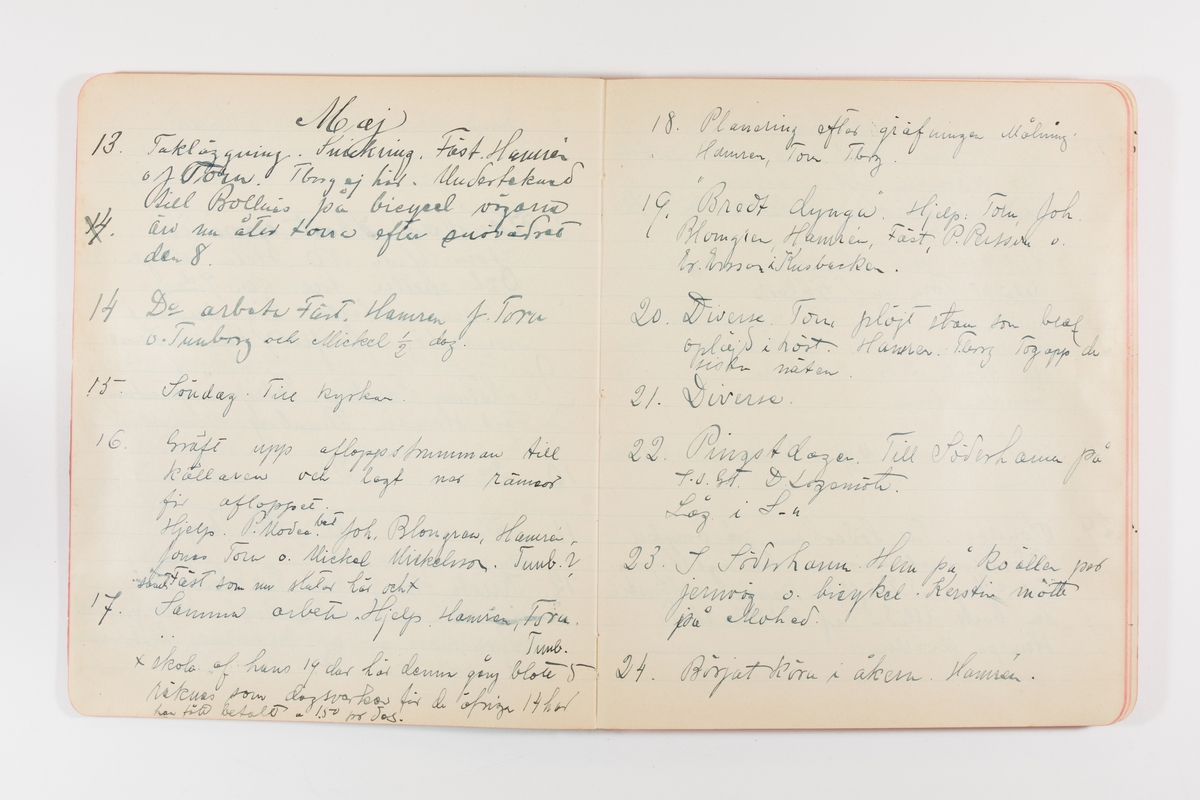 Maj
13. Takläggning. Snickring. Fäst. Hamrén
o J Torn. Tborg ej här. Underteknad
till Bollnäs på bicycel vägarne
14. äro nu åter torra efter snövädret
den 8.
14 Do arbete Fäst. Hamrén J. Torn
o. Tunborg och Mickel ½ dag.
15. Söndag. Till kyrkan.
16. Gräft upp afloppstrumman till
källaren och lagt ner rännor
för afloppet.
Hjelp. P. Joh. Blomgren, Hamrén,
Jonas Torn o. Mickel Mickelsson. Tunb. ?
samt Fäst som nu slutar här och x
17. Samma arbete. Hjelp. Hamrén, Torn.
Tunb.
x skola af hans 19 dar här denna gång blott 5
räknas som dagsverken för de öfriga 14 har
han fått betalt a 150 pr dag.
18. Planering efter gräfningen Målning.
Hamrén, Torn Tborg.
19. Bredt dynga. Hjelp: Torn, Joh.
Blomgren, Hamrén, Fäst, P. Persson o.
Er. Ersson i Kusbacken.
20. Diverse. Torn plöjt som blef
oplöjd i höst. Hamrén. Tborg Tog upp de
sista näten.
21. Diverse.
22. Pingstdagen. Till Söderhamn på
D Logemöte.
Låg i S-n
23. I Söderhamn. Hem på kvällen per
jernväg o. bicykel. Kerstin mötte
på Mohed.
24. Börjat köra i åkern. Hamrén.